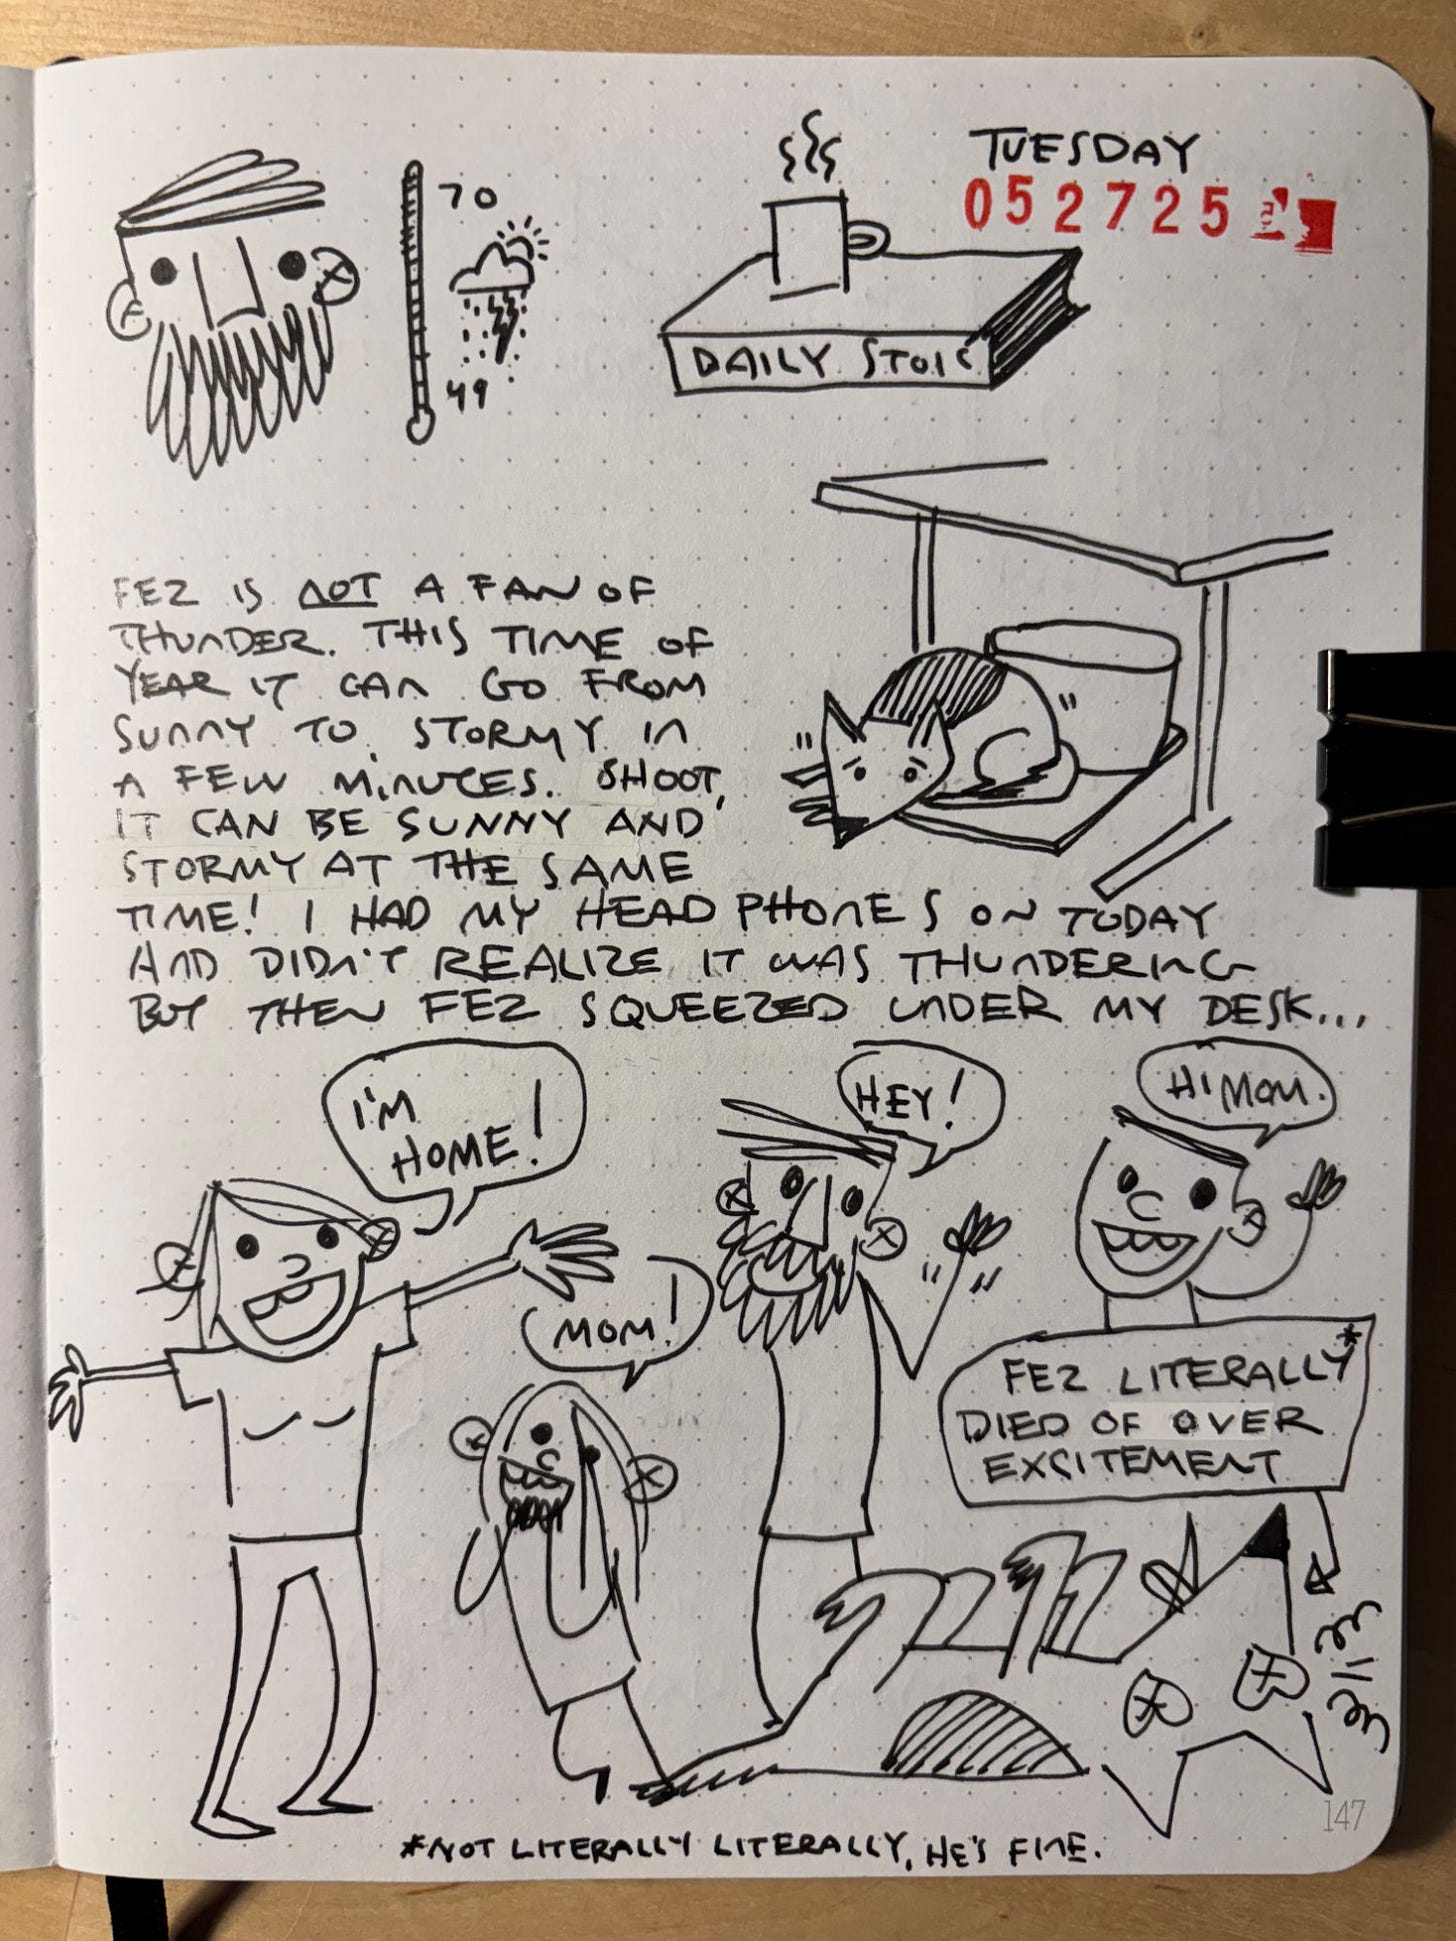 TUESDAY
052725
70
49
DAILY STOIC
FEZ IS NOT A FAN OF
THUNDER. THIS TIME OF
YEAR IT CAN GO FROM
SUNNY TO STORMY IN
A FEW MINUTES. SHOOT,
IT CAN BE SUNNY AND
STORMY AT THE SAME
TIME! I HAD MY HEADPHONES ON TODAY
AND DIDN'T REALIZE IT WAS THUNDERING
BUT THEN FEZ SQUEEZED UNDER MY DESK...
I'M
HOME!
MOM!
HEY!
HI MOM.
FEZ LITERALLY*
DIED OF OVER
EXCITEMENT
*NOT LITERALLY LITERALLY, HE'S FINE.
147